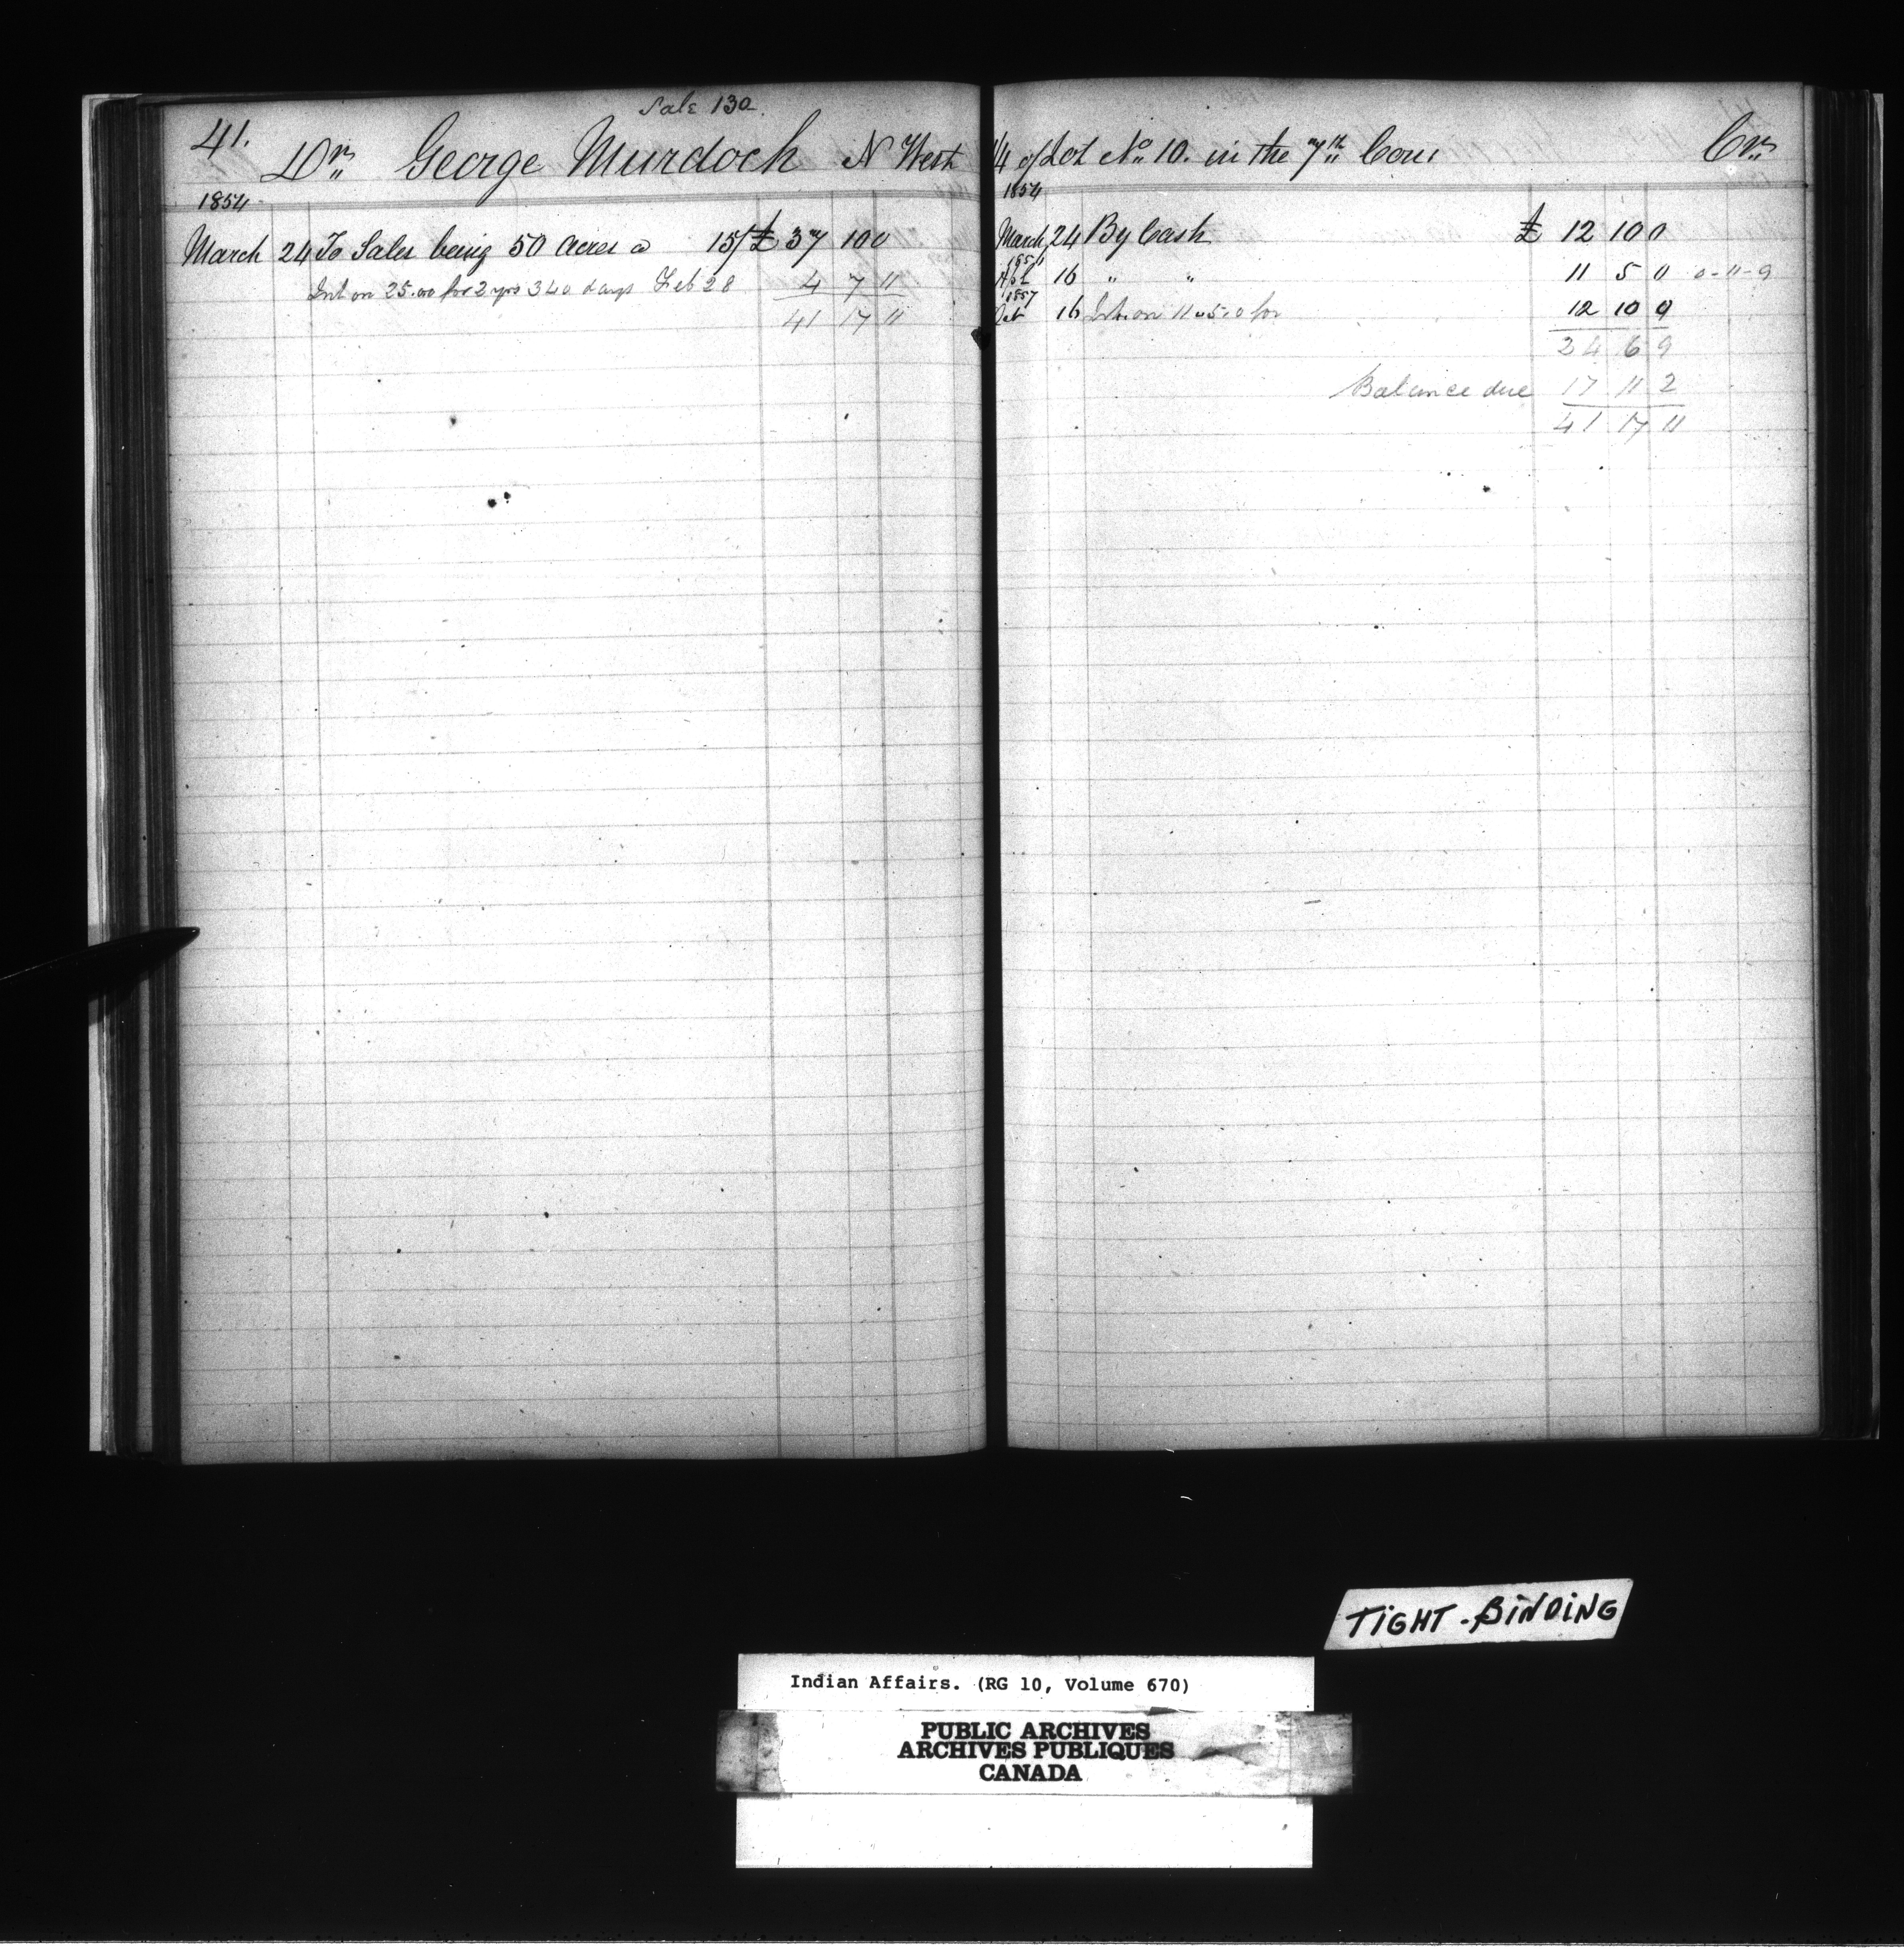 Sale 130.
41. Dr. George Murdoch N West 1/4 of Lot No 10. in the 7th Con: Cr.
1854
March 24 To Sales being 50 Acres @ 15/ £ 37 10 0
Int on 25.00 for 2 yrs 340 days Feb 28 4 7 11
41 17 11
1854
March 24 By Cash £ 12 10 0
16 " " 11 5 0 0-11-9
1857
16 Int. on 11 5.0 for 12 10 0
24 6 9
Balance due 17 11 2
41 17 11
TIGHT-BINDING
Indian Affairs. (RG 10, Volume 670)
PUBLIC ARCHIVES
ARCHIVES PUBLIQUES
CANADA